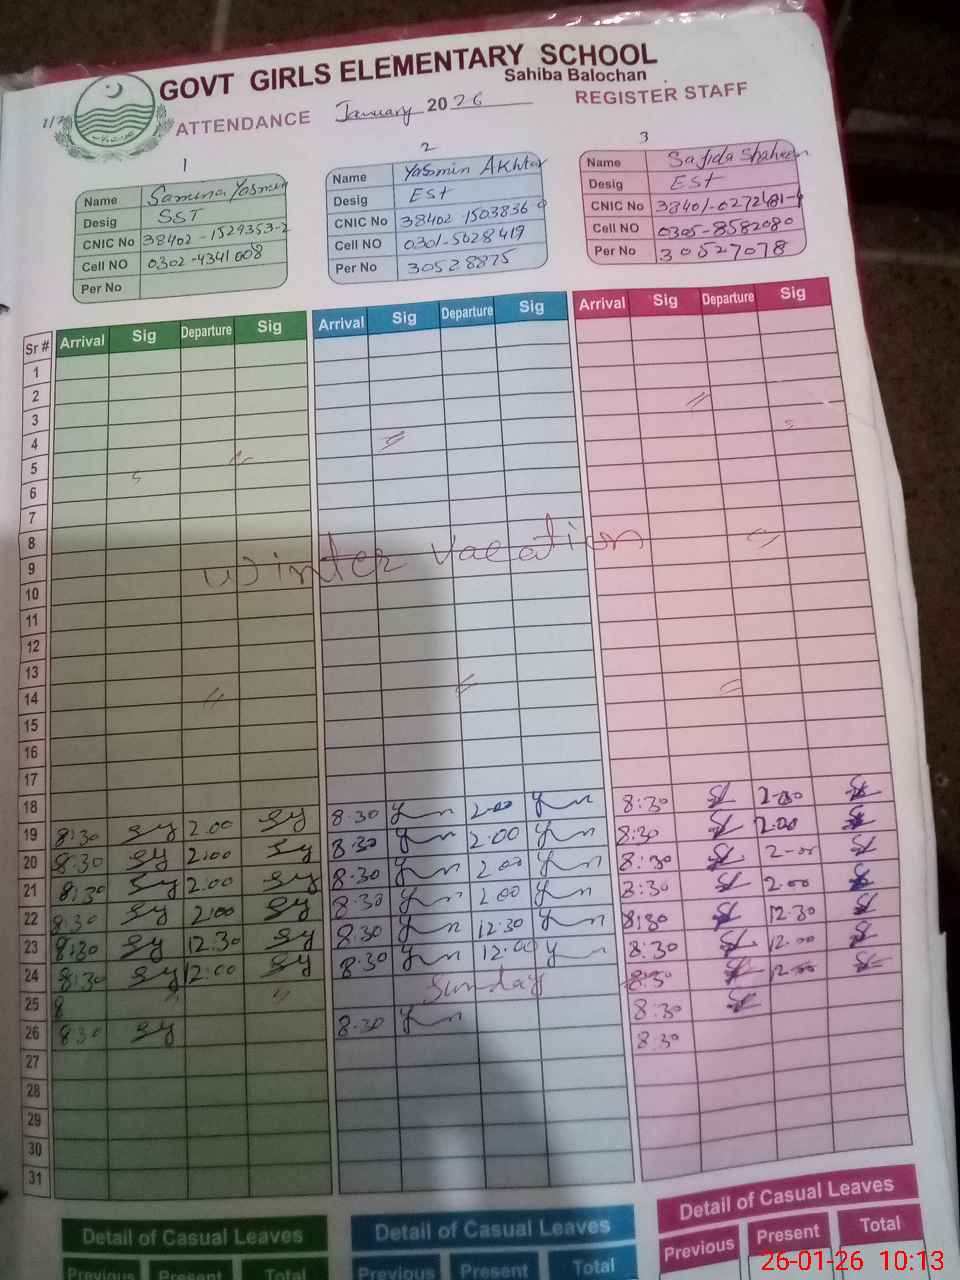 GOVT GIRLS ELEMENTARY SCHOOL
Sahiba Balochan
ATTENDANCE January 2026 REGISTER STAFF
1 2 3
Name Samina Yasmin
Desig SST
CNIC No 38402-1529353-2
Cell NO 0302-4341008
Per No
Name Yasmin Akhtar
Desig Est
CNIC No 38402-1503836-
Cell NO 0301-5628419
Per No 30528875
Name Sajida Shaheen
Desig Est
CNIC No 38401-0272481-4
Cell NO 0305-8582080
Per No 30527078
Sr # Arrival Sig Departure Sig Arrival Sig Departure Sig Arrival Sig Departure Sig
1
2
3
4
5
6
7
8
winter vacation
9
10
11
12
13
14
15
16
17
18 8:30 2:00 8:30 2:00
19 8:30 sy 2:00 sy 8:30 2:00 8:30 2:00
20 8:30 sy 2:00 sy 8:30 2:00 8:30 2:00
21 8:30 sy 2:00 sy 8:30 2:00 8:30 2:00
22 8:30 sy 2:00 sy 8:30 12:30 8:30 12:30
23 8:30 sy 12:30 sy 8:30 12:00 8:30 12:00
24 8:30 sy 12:00 sy Sunday 8:30 12:00
25 8 8:30
26 8:30 sy 8:30 8:30
27
28
29
30
31
Detail of Casual Leaves Detail of Casual Leaves Detail of Casual Leaves
Previous Present Total Previous Present Total Previous Present Total
26-01-26 10:13